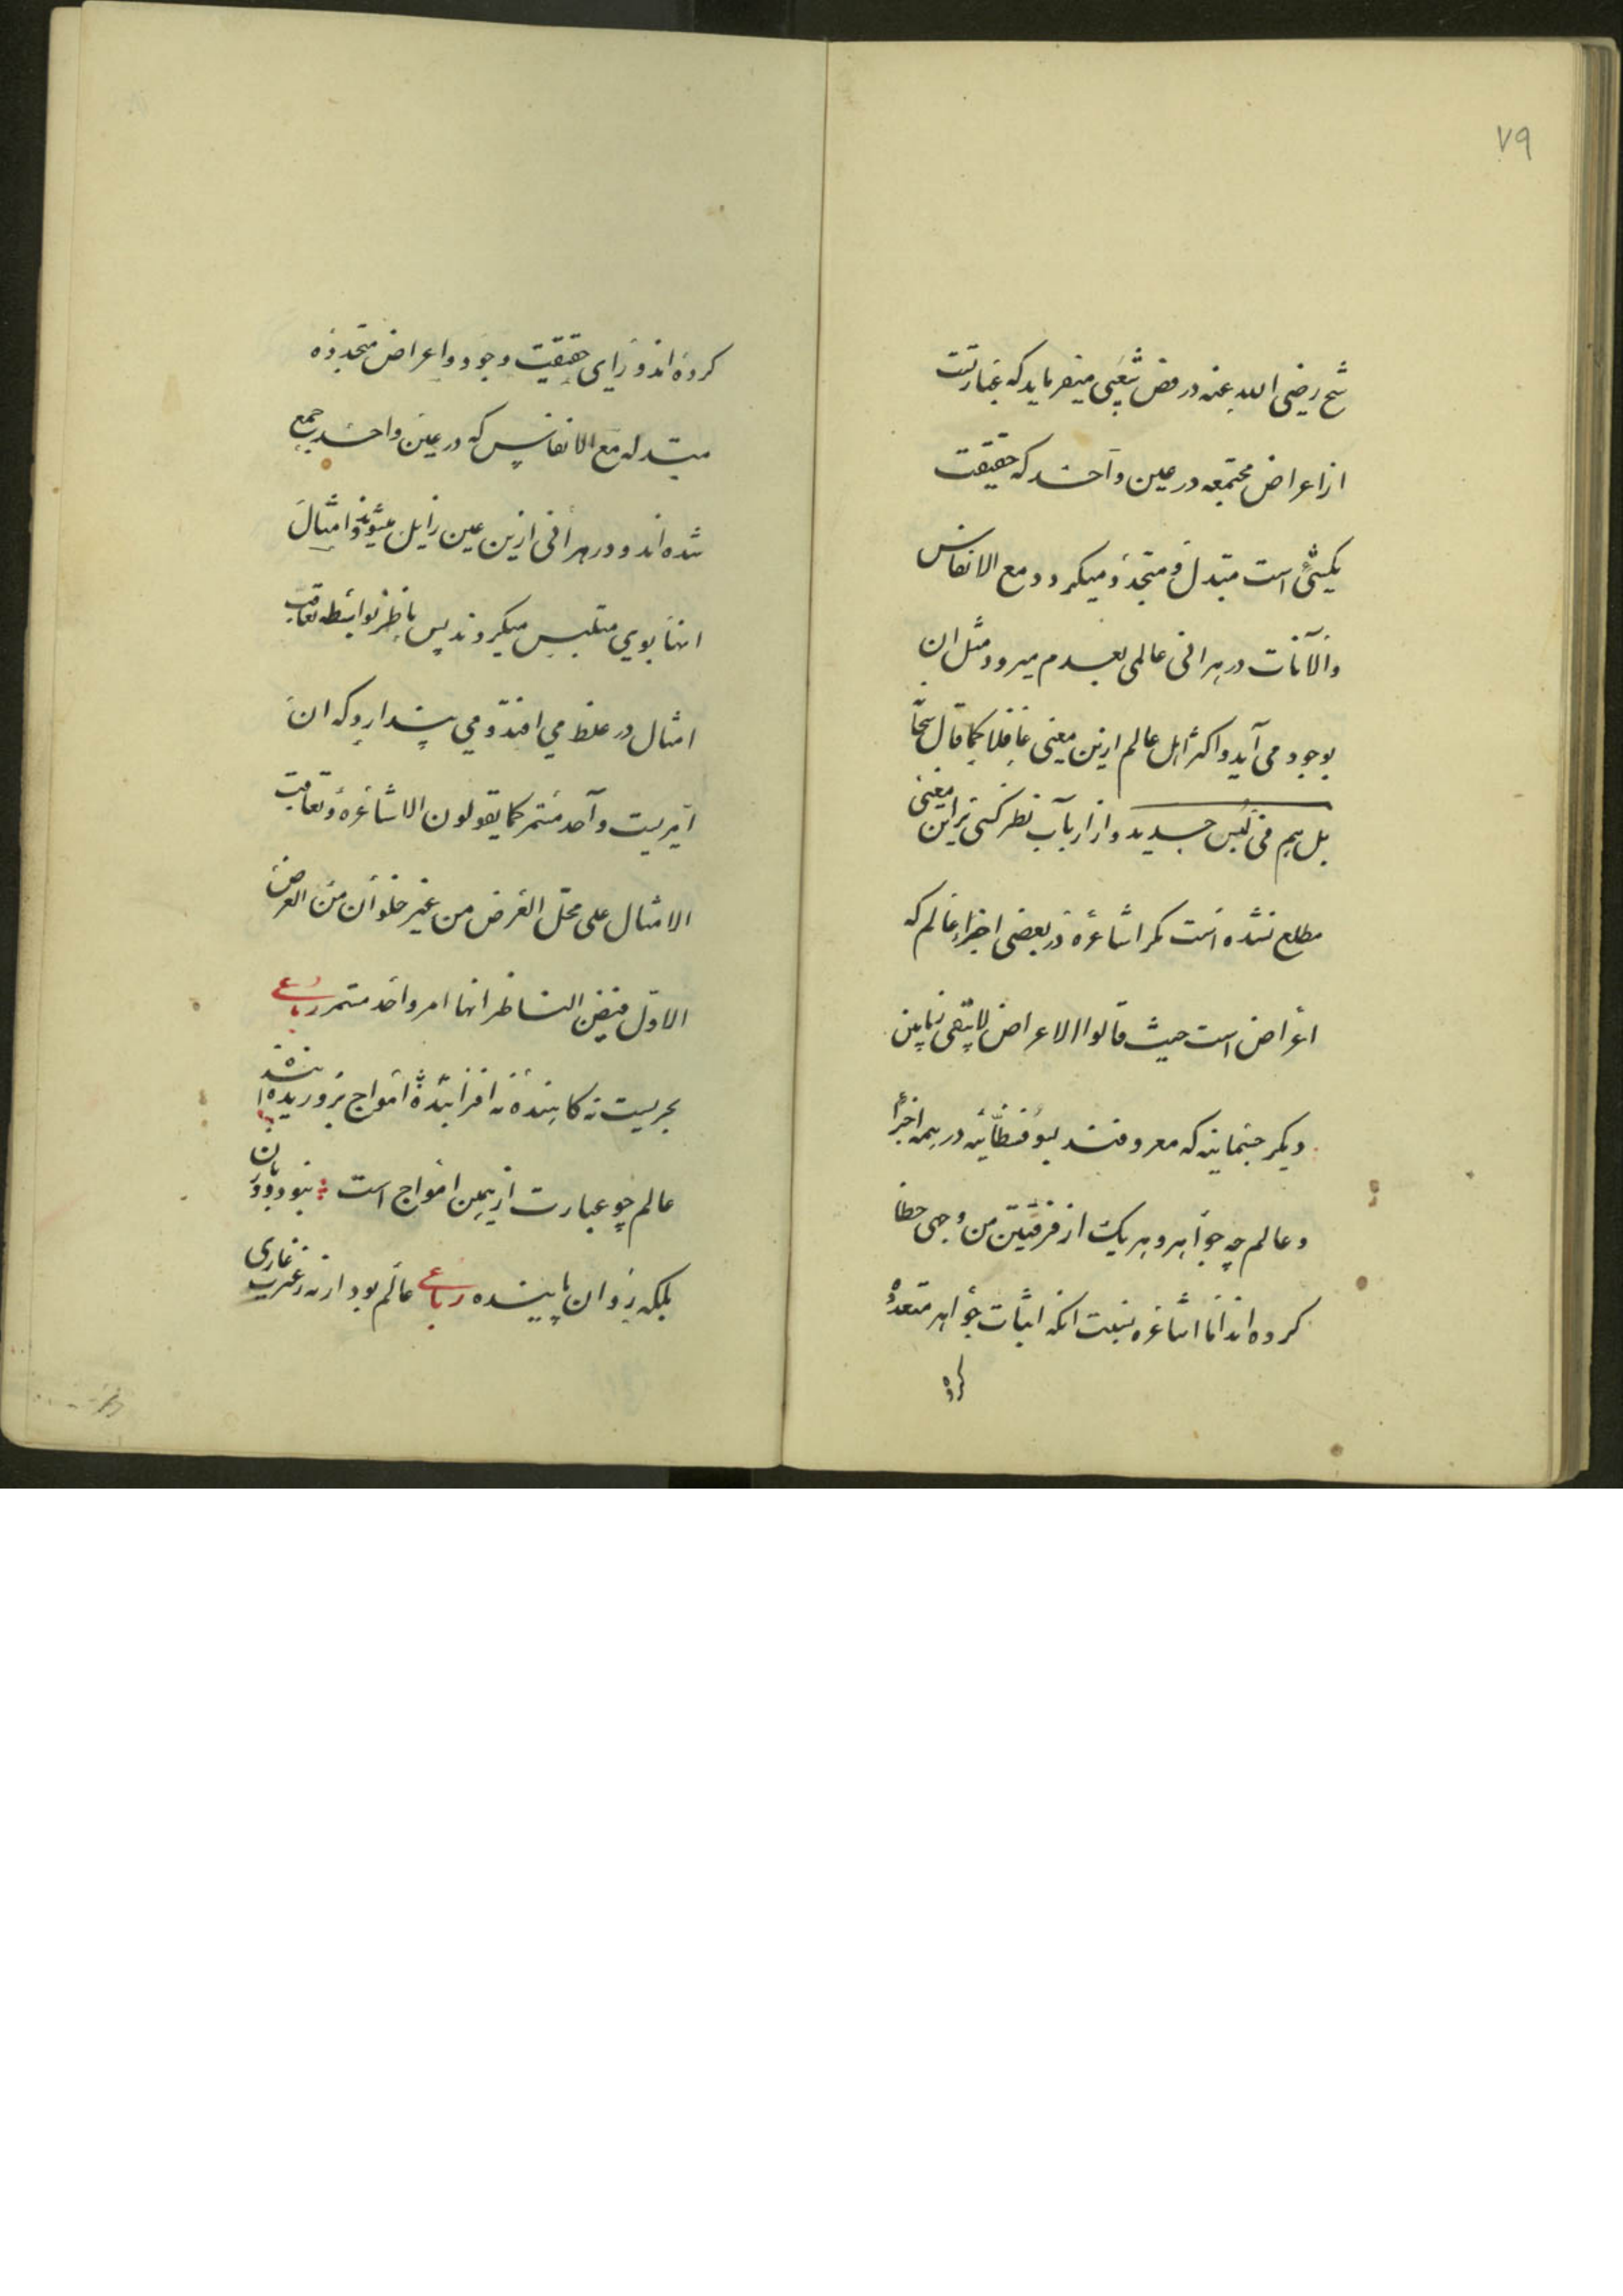 ٧٩
شیخ رضی الله عنه در فص شعیبی میفرماید که عبارتت
از اعراض مجتمعه در عین واحد که حقیقت
یکیئی است متبدل و متجدد میکردد مع الانفاس
والآنات در هر آنی عالمی بعدم میرود و مثل ان
بوجود می آید و اکثر اهل عالم ازین معنی غافلند کما قال سبحا
بل هم فی لبس جدید و از ارباب نظر کسی براین معنی
مطلع نشده است مکر اشاعره در بعضی اجزاء عالم که
اعراض است حیث قالوا الاعراض لا یبقی زمانین
و دیکر جسمانیه که معروفند بسوفسطائیه در همه اجزاء
و عالم چه جواهر و هر یک از فریقین من وجهی خطا
کرده اند اما اشاعره بسبب انکه اثبات جواهر متعدده
کرده
کرده اند ورای حقیقت وجود و اعراض متجدده
متبدله مع الانفاس که در عین واحد جمع
شده اند و در هر آنی ازین عین زایل میشوند و امثال
انها بوی متلبس میکردند پس ناظر بواسطه تعاقب
امثال در غلط می افتد و می پندارد که ان
امریست واحد مستمر کما یقولون الاشاعره و تعاقب
الامثال علی محل العرض من غیر خلو آن من العرض
الاول فیظن الناظر انها امر واحد مستمر رباعی
بحریست نه کاهنده نه افزاینده امواج برو رونده آینده
عالم چو عبارت از همین امواج است نبود دو زمان
بلکه دو ان پاینده رباعی عالم بود ار نه ز عبرت عاری